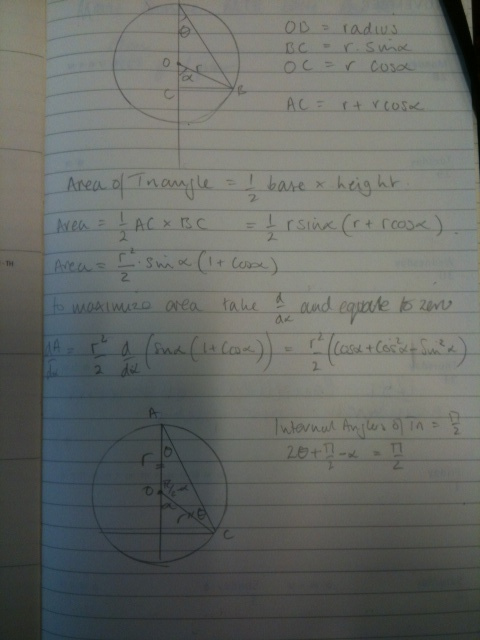 θ
O r
α
C B
OB = radius
BC = r. sinα
OC = r cosα
AC = r + rcosα
Area of Triangle = 1/2 base × height.
Area = 1/2 AC × BC = 1/2 rsinα (r + rcosα).
Area = r²/2 . sinα (1 + cosα)
to maximize area take d/dα and equate to zero
dA/dα = r²/2 d/dα (sinα (1 + cosα)) = r²/2 (cosα + cos²α - sin²α)
A
θ
r
O π/2-α
α r θ
C
Internal Angles of Tri = π/2
2θ + π/2 - α = π/2